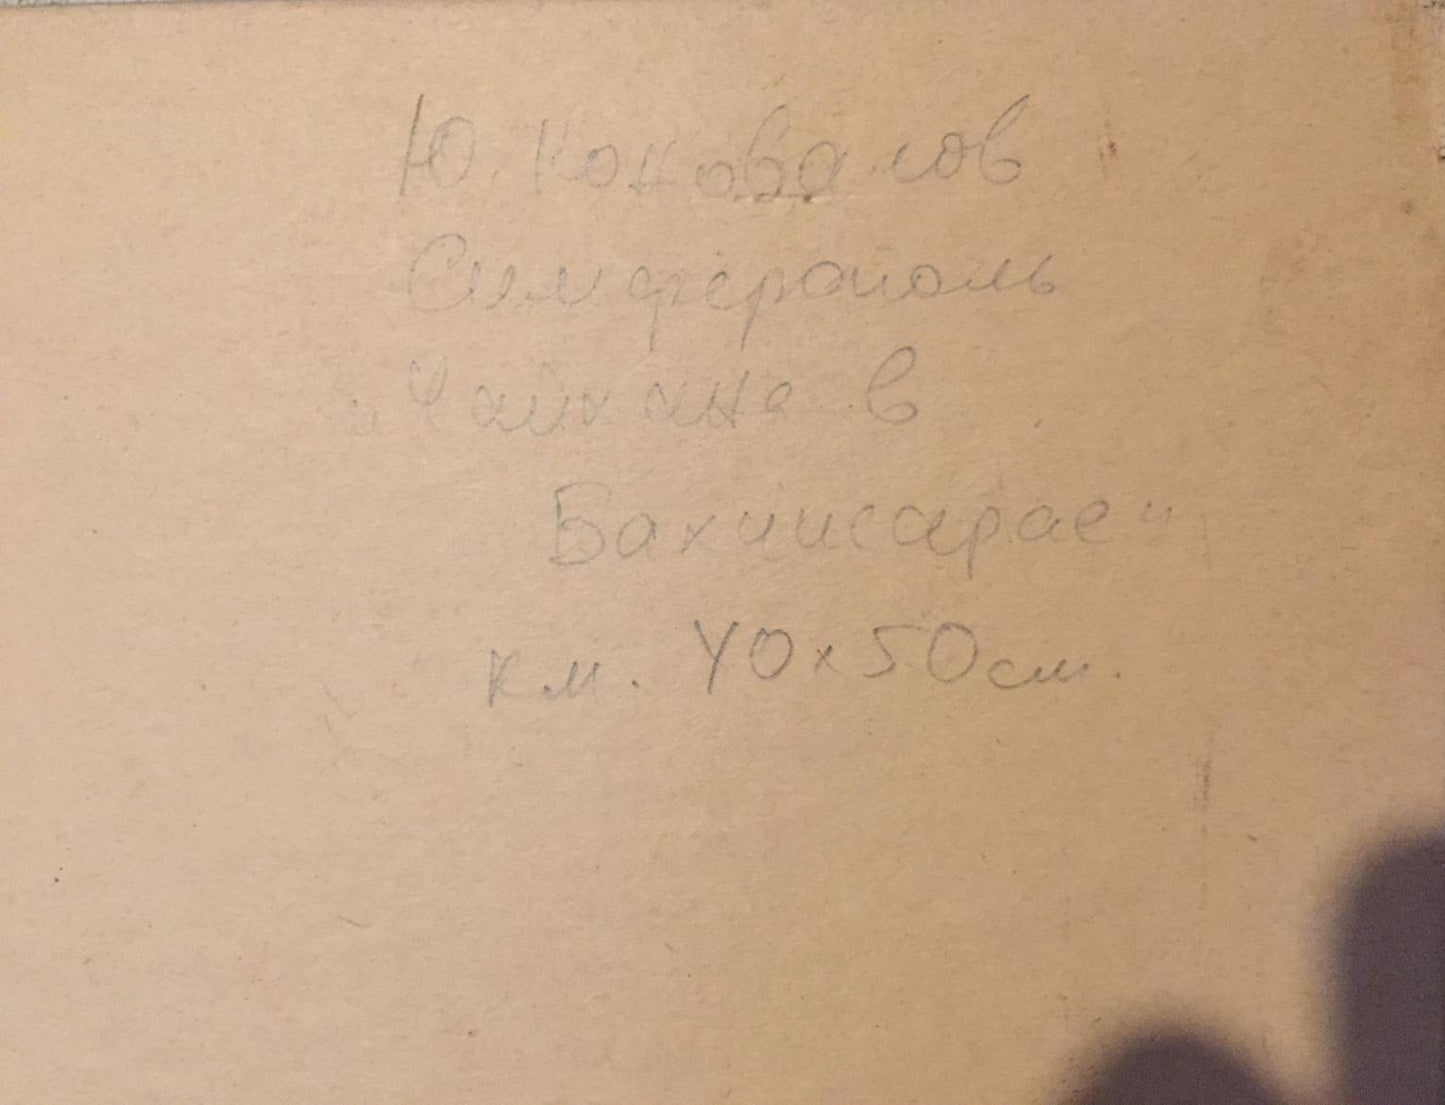 Ю. Коновалов
Симферополь
„Чайхана в
Бахчисарае"
к.м. 40х50см.